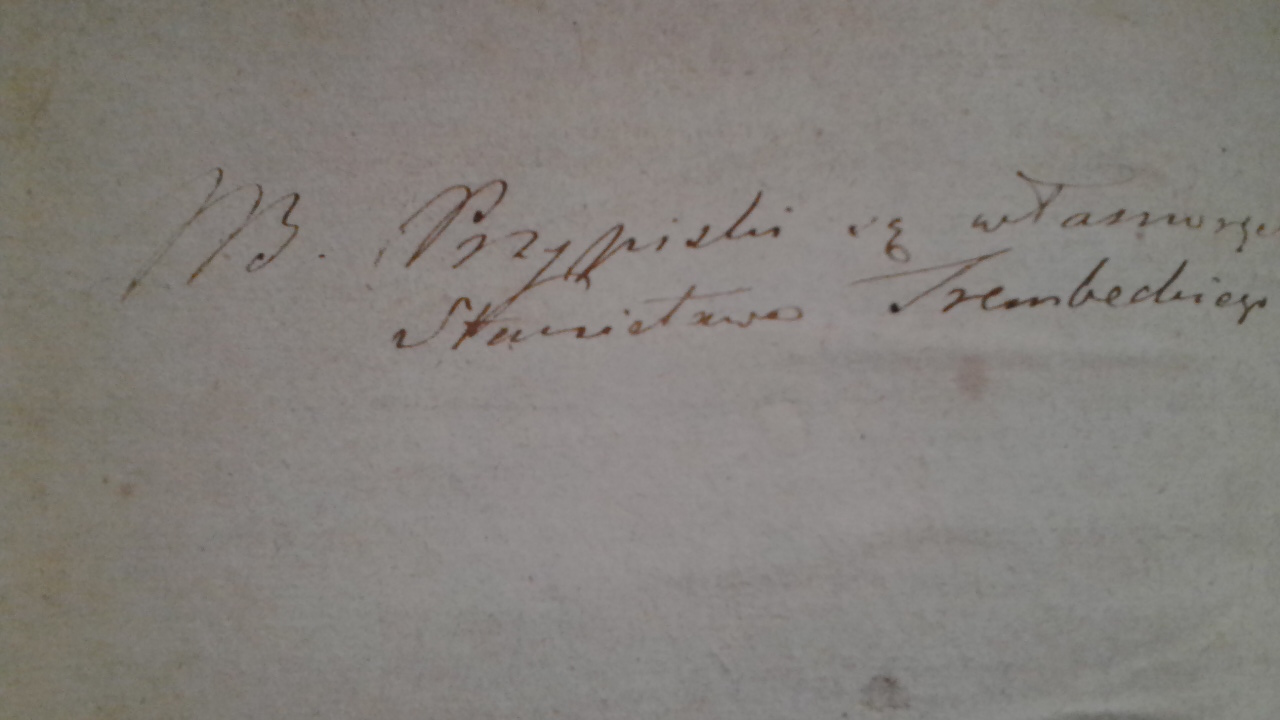 NB. Przypiski są własnoręcz
Stanisława Trembeckiego